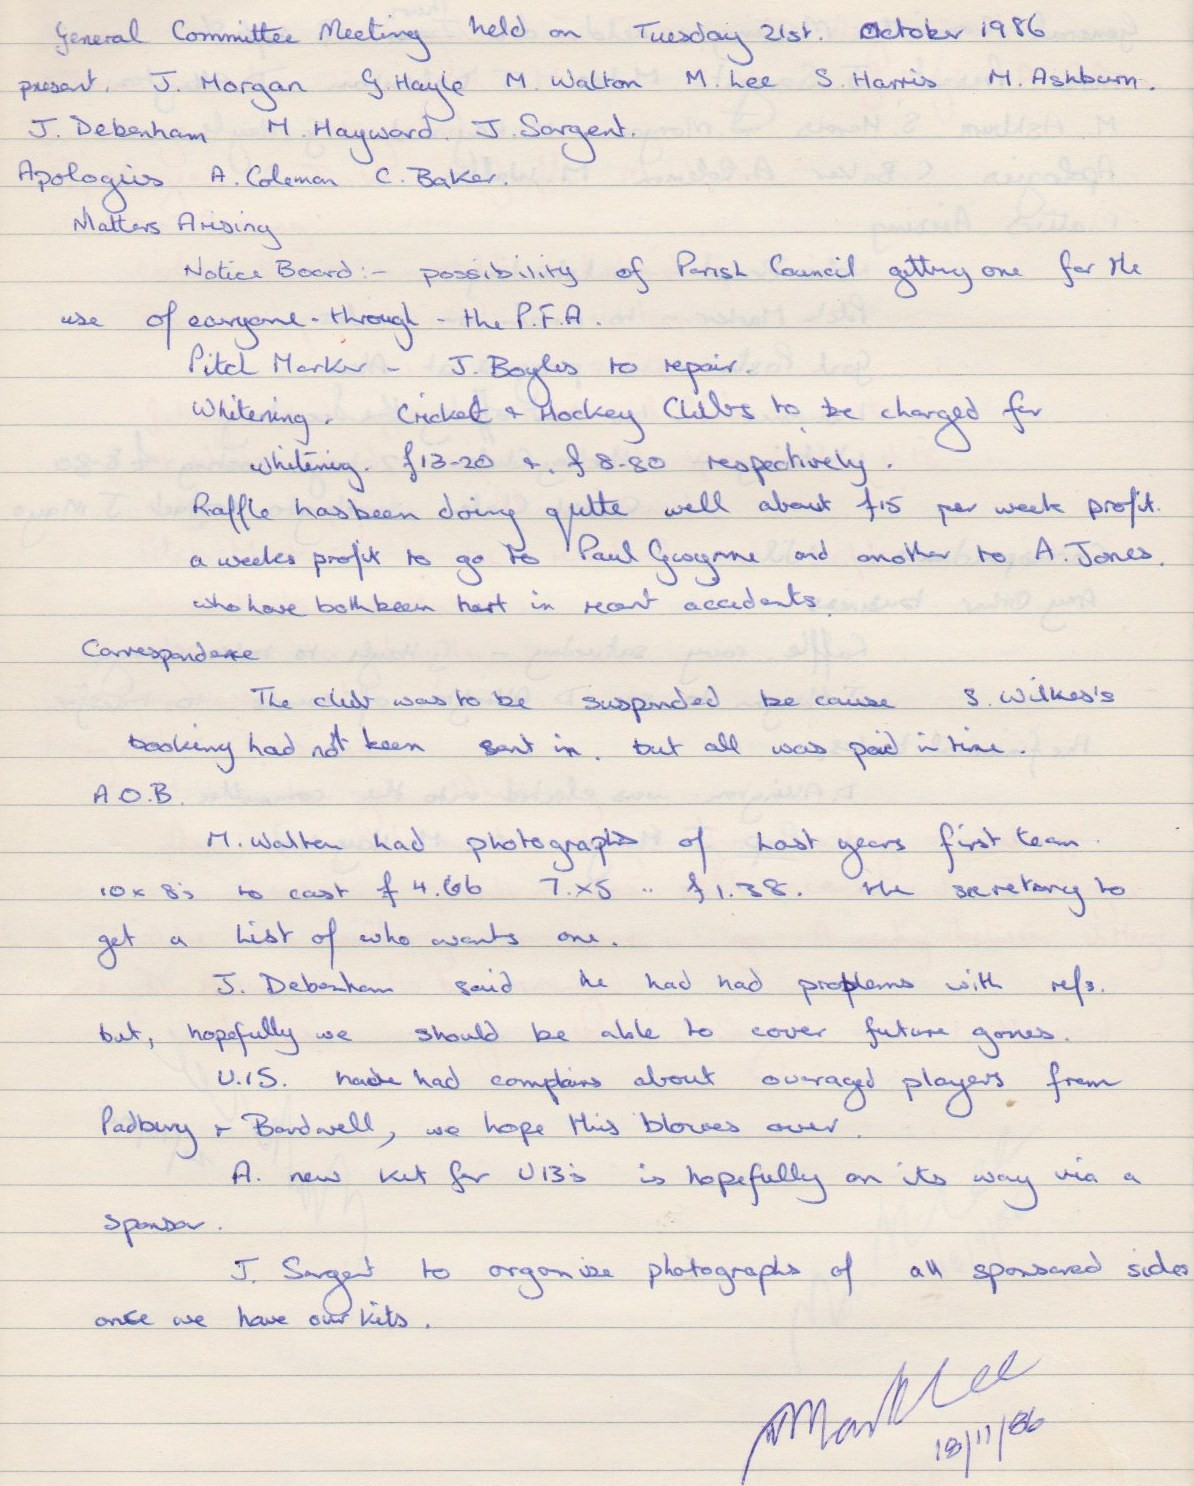 General Committee Meeting held on Tuesday 21st. October 1986
present. J. Morgan G. Hayle M. Walton M. Lee S. Harris M. Ashburn.
J. Debenham M. Hayward. J. Sargent.
Apologies A. Coleman C. Baker.
Matters Arising
Notice Board:- possibility of Parish Council getting one for the
use of everyone - through - the P.F.A.
Pitch Marker - J. Boyles to repair.
Whitening. Cricket + Hockey Clubs to be charged for
whitening. £13-20 +. £8-80 respectively.
Raffle has been doing quite well about £15 per week profit.
a weeks profit to go to Paul Gwynne and another to A. Jones.
who have both been hurt in recent accidents.
Correspondence
The club was to be suspended be cause S. Wilkes's
booking had not been sent in. but all was paid in time.
A.O.B.
M. Walton had photographs of Last years first team.
10x 8's to cost £4.66 7.x5 " £1.38. the secretary to
get a List of who wants one.
J. Debenham said he had had problems with refs.
but, hopefully we should be able to cover future games.
U.15. had complains about overaged players from
Padbury + Bardwell, we hope this blowes over.
A. new kit for U13's is hopefully on its way via a
sponsor.
J. Sargent to organise photographs of all sponsored sides
once we have our kits.
Mark Lee
18/11/86